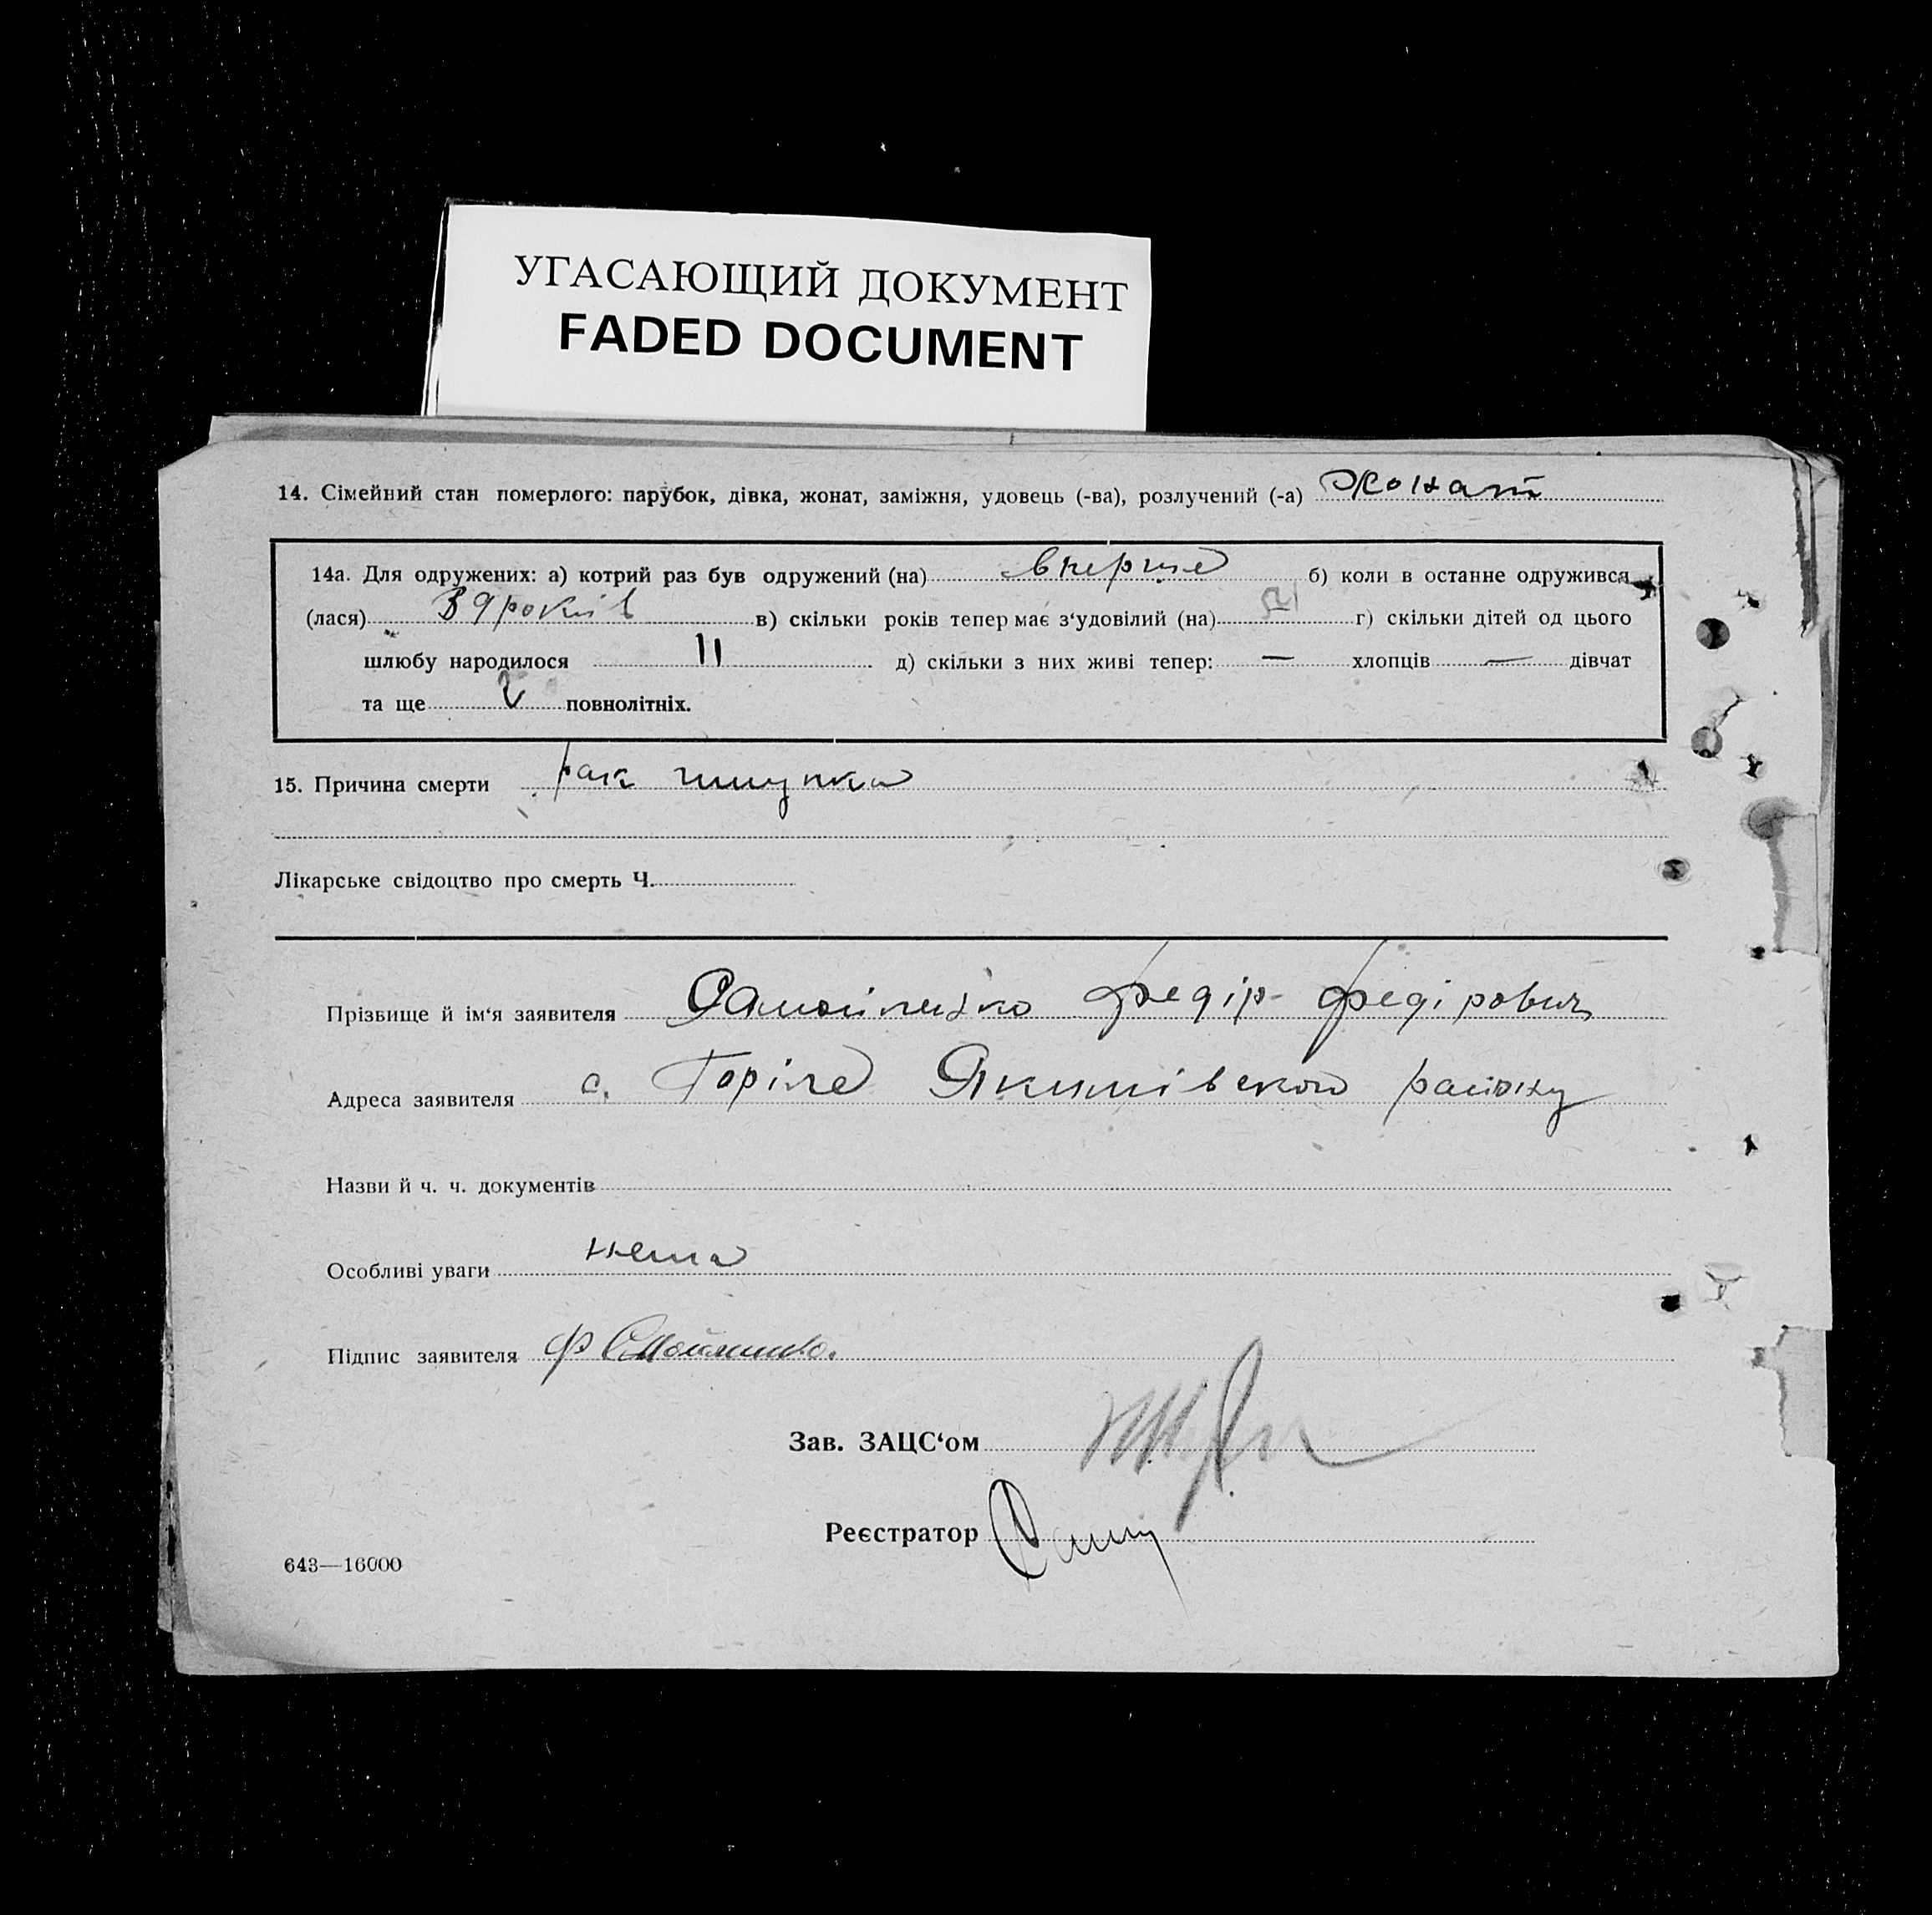 УГАСАЮЩИЙ ДОКУМЕНТ
FADED DOCUMENT
14. Сімейний стан померлого: парубок, дівка, жонат, заміжня, удовець (-ва), розлучений (-а) Жонат
14а. Для одружених: а) котрий раз був одружений (на) вперше б) коли в останнє одружився
(лася) 39 років в) скільки років тепер має з‘удовілий (на) г) скільки дітей од цього
шлюбу народилося 11 д) скільки з них живі тепер: — хлопців — дівчат
та ще 2 повнолітніх.
15. Причина смерти рак шлунка
Лікарське свідоцтво про смерть Ч.
Прізвище й ім‘я заявителя Самойленко Федір Федірович
Адреса заявителя с. Горіле Якимівского району
Назви й ч. ч. документів
Особливі уваги нема
Підпис заявителя Ф Смойленко.
Зав. ЗАЦС‘ом
Реєстратор
643—16000